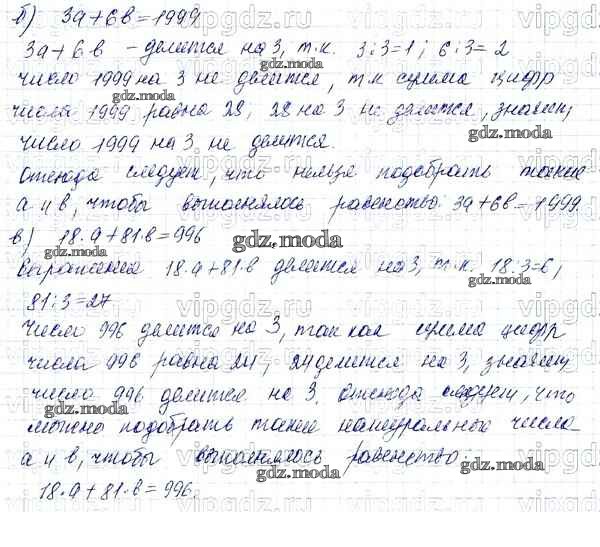 б) 3а + 6в = 1999
3а + 6в – делится на 3, т.к. 3:3=1; 6:3=2
число 1999 на 3 не делится, т.к сумма цифр
числа 1999 равна 28, 28 на 3 не делится, значит,
число 1999 на 3 не делится.
Отсюда следует, что нельзя подобрать такие
а и в, чтобы выполнялось равенство 3а+6в=1999
в) 18·а+81·в=996
Выражение 18·а+81·в делится на 3, т.к. 18:3=6,
81:3=27
Число 996 делится на 3, так как сумма цифр
числа 996 равна 24, 24 делится на 3, значит,
число 996 делится на 3. Отсюда следует, что
можно подобрать такие натуральные числа
а и в, чтобы выполнялось равенство:
18·а+81·в=996.
vipgdz.com
gdz.moda